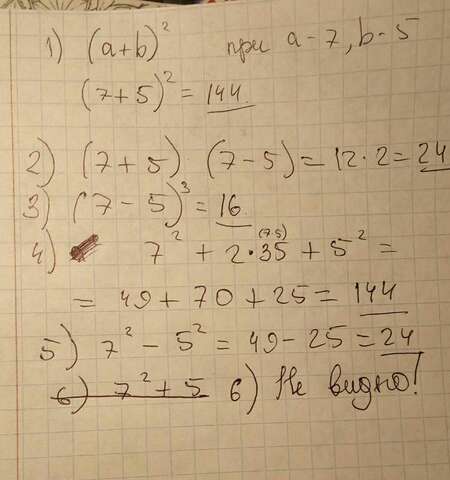 1) (a+b)² при a-7, b-5
(7+5)² = 144
2) (7+5) · (7-5) = 12·2 = 24
3) (7-5)³ = 16
4) 7² + 2·35 (7·5) + 5² =
= 49 + 70 + 25 = 144
5) 7² - 5² = 49 - 25 = 24
6) 7² + 5 6) Не видно!